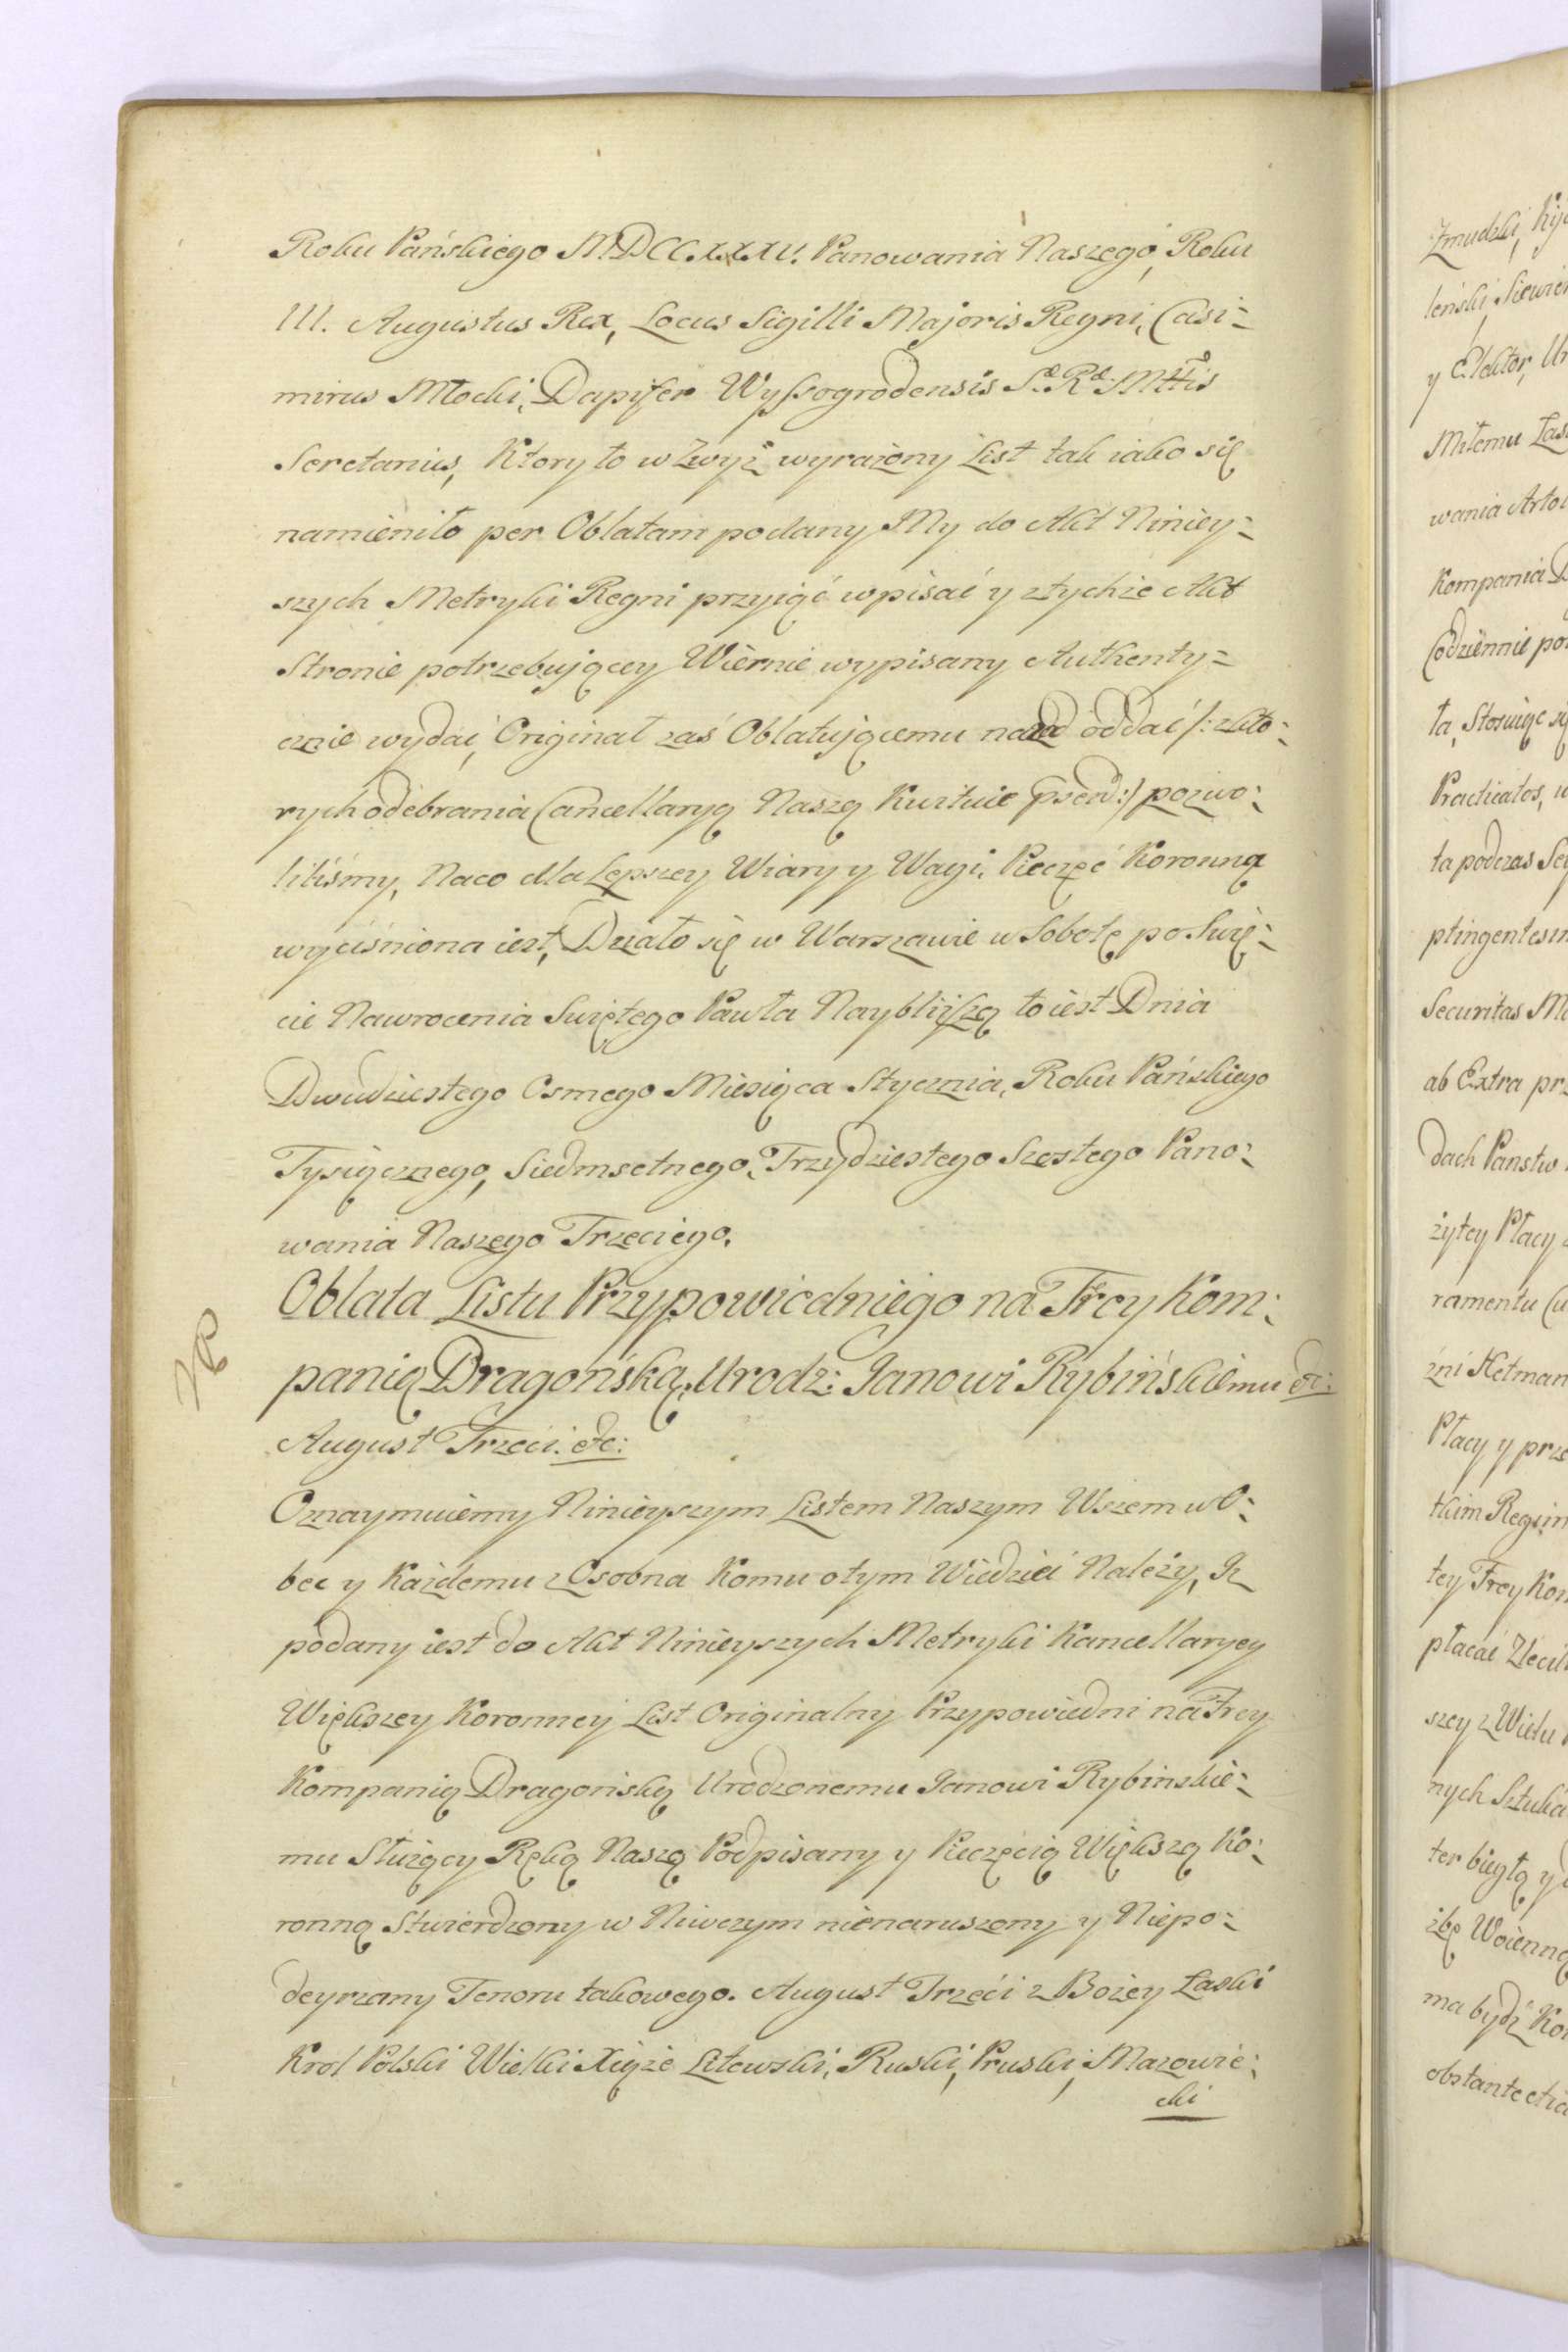 Roku Pańskiego MDCC.XXXV. Panowania Naszego, Roku
III. Augustus Rex, Locus Sigilli Majoris Regni, Casi=
mirus Młocki, Dapifer Wyssogrodensis S. R. Mttis
Seretarius, Ktory to w Zwyż wyrażony List tak iako się
namieniło per Oblatam podany My do Akt Niniey=
szych Metryki Regni przyiąć wpisać y ztychże Akt
Stronie potrzebującey Wiernie wypisany Authenty=
cznie wydać, Originał zaś Oblatującemu nazad oddać /: z kto=
rych odebrania Cancellaryą Naszą Kwituie :/ pozwo=
liliśmy, Naco dla Lepszey Wiary y Wagi, Pieczęć Koronna
wyciśniona iest, Działo się w Warszawie w Sobotę po Swię=
cie Nawrocenia Swiętego Pawła Naybliższą to iest Dnia
Dwudziestego Osmego Miesiąca Stycznia, Roku Pańskiego
Tysiącznego, Siedmsetnego, Trzydziestego Szostego Pano=
wania Naszego Trzeciego.
Oblata Listu Przypowiedniego na Frey Kom=
panią Dragońską, Urodz: Janowi Rybińskiemu etc:
August Trzeci. etc:
Oznaymuiemy Ninieyszym Listem Naszym Wszem w O=
bec y Każdemu z Osobna Komu o tym Wiedzieć Należy, Iż
podany iest do Akt Ninieyszych Metryki Kancellaryey
Większey Koronney List Originalny Przypowiedni na Frey
Kompanią Dragońską Urodzonemu Janowi Rybinskie=
mu Służący Ręką Naszą Podpisany y Pieczęcią Większą Ko=
ronną Stwierdzony w Niwczym nienaruszony y Niepo=
deyrzany Tenoru takowego. August Trzeći z Bożey Łaski
Krol Polski Wielki Xiąże Litewski, Ruski, Pruski, Mazowie=
cki
Zmudzki, Kij
leński, Siewie
y Elektor, Ur
Miłemu Łas
wania Artol
Kompania D
Codziennie po
ta, Stosuiąc się
Practicatos, w
ta podczas Se
ptingentesim
Securitas M
ab Extra pr
dach Panstw
żytey Płacy
ramentu Cu
zni Hetman
Płacy y prze
tkim Regim
tey Frey Kom
płacać Zleci
szey z Wielu
nych Sztuka
ter biegłą y
żbę Woienną
ma bydź Ko
obstante etia